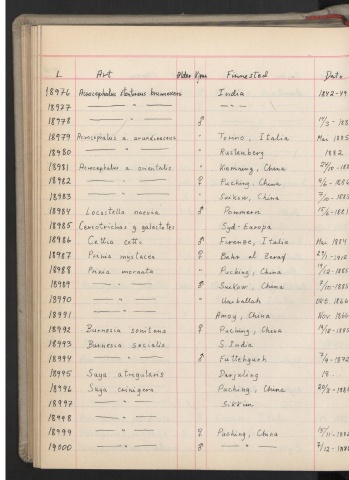 L Art Alder Kjøn Finnested Dato
18976 Acrocephalus stentoreus brunnescens India 1842-49
18977 — " — — " —
18978 — " — ♂ 14/3-188
18979 Acrocephalus a. arundinaceus " Torino, Italia Mai 1885
18980 — " — " Rustenberg 1882
18981 Acrocephalus a. orientalis " Kiemang, China
18982 — " — ♀ Fuching, China
18983 — " — " Swikow, China
18984 Locustella naevia ♂ Pommern
18985 Cercotrichas g galactotes Syd-Europa
18986 Cettia cetti ♂ Firenze, Italia Mai 1884
18987 Prinia mystacea ♀ Bahr el Zeraf
18988 Prinia inornata " Fuching, China
18989 — " — ♂ Swikow, China
18990 — " — "
18991 — " — Amoy, China Nov. 1866
18992 Burnesia sonitans ♀ Fuching, China
18993 Burnesia socialis S. India
18994 — " — ♂ Futtehgurh
18995 Suya atrogularis Darjeeling 19
18996 Suya crinigera Fuching, China
18997 — " — Sikkim
18998 — " —
18999 — " — ♀ Fuching, China
19000 — " — ♂ — " —